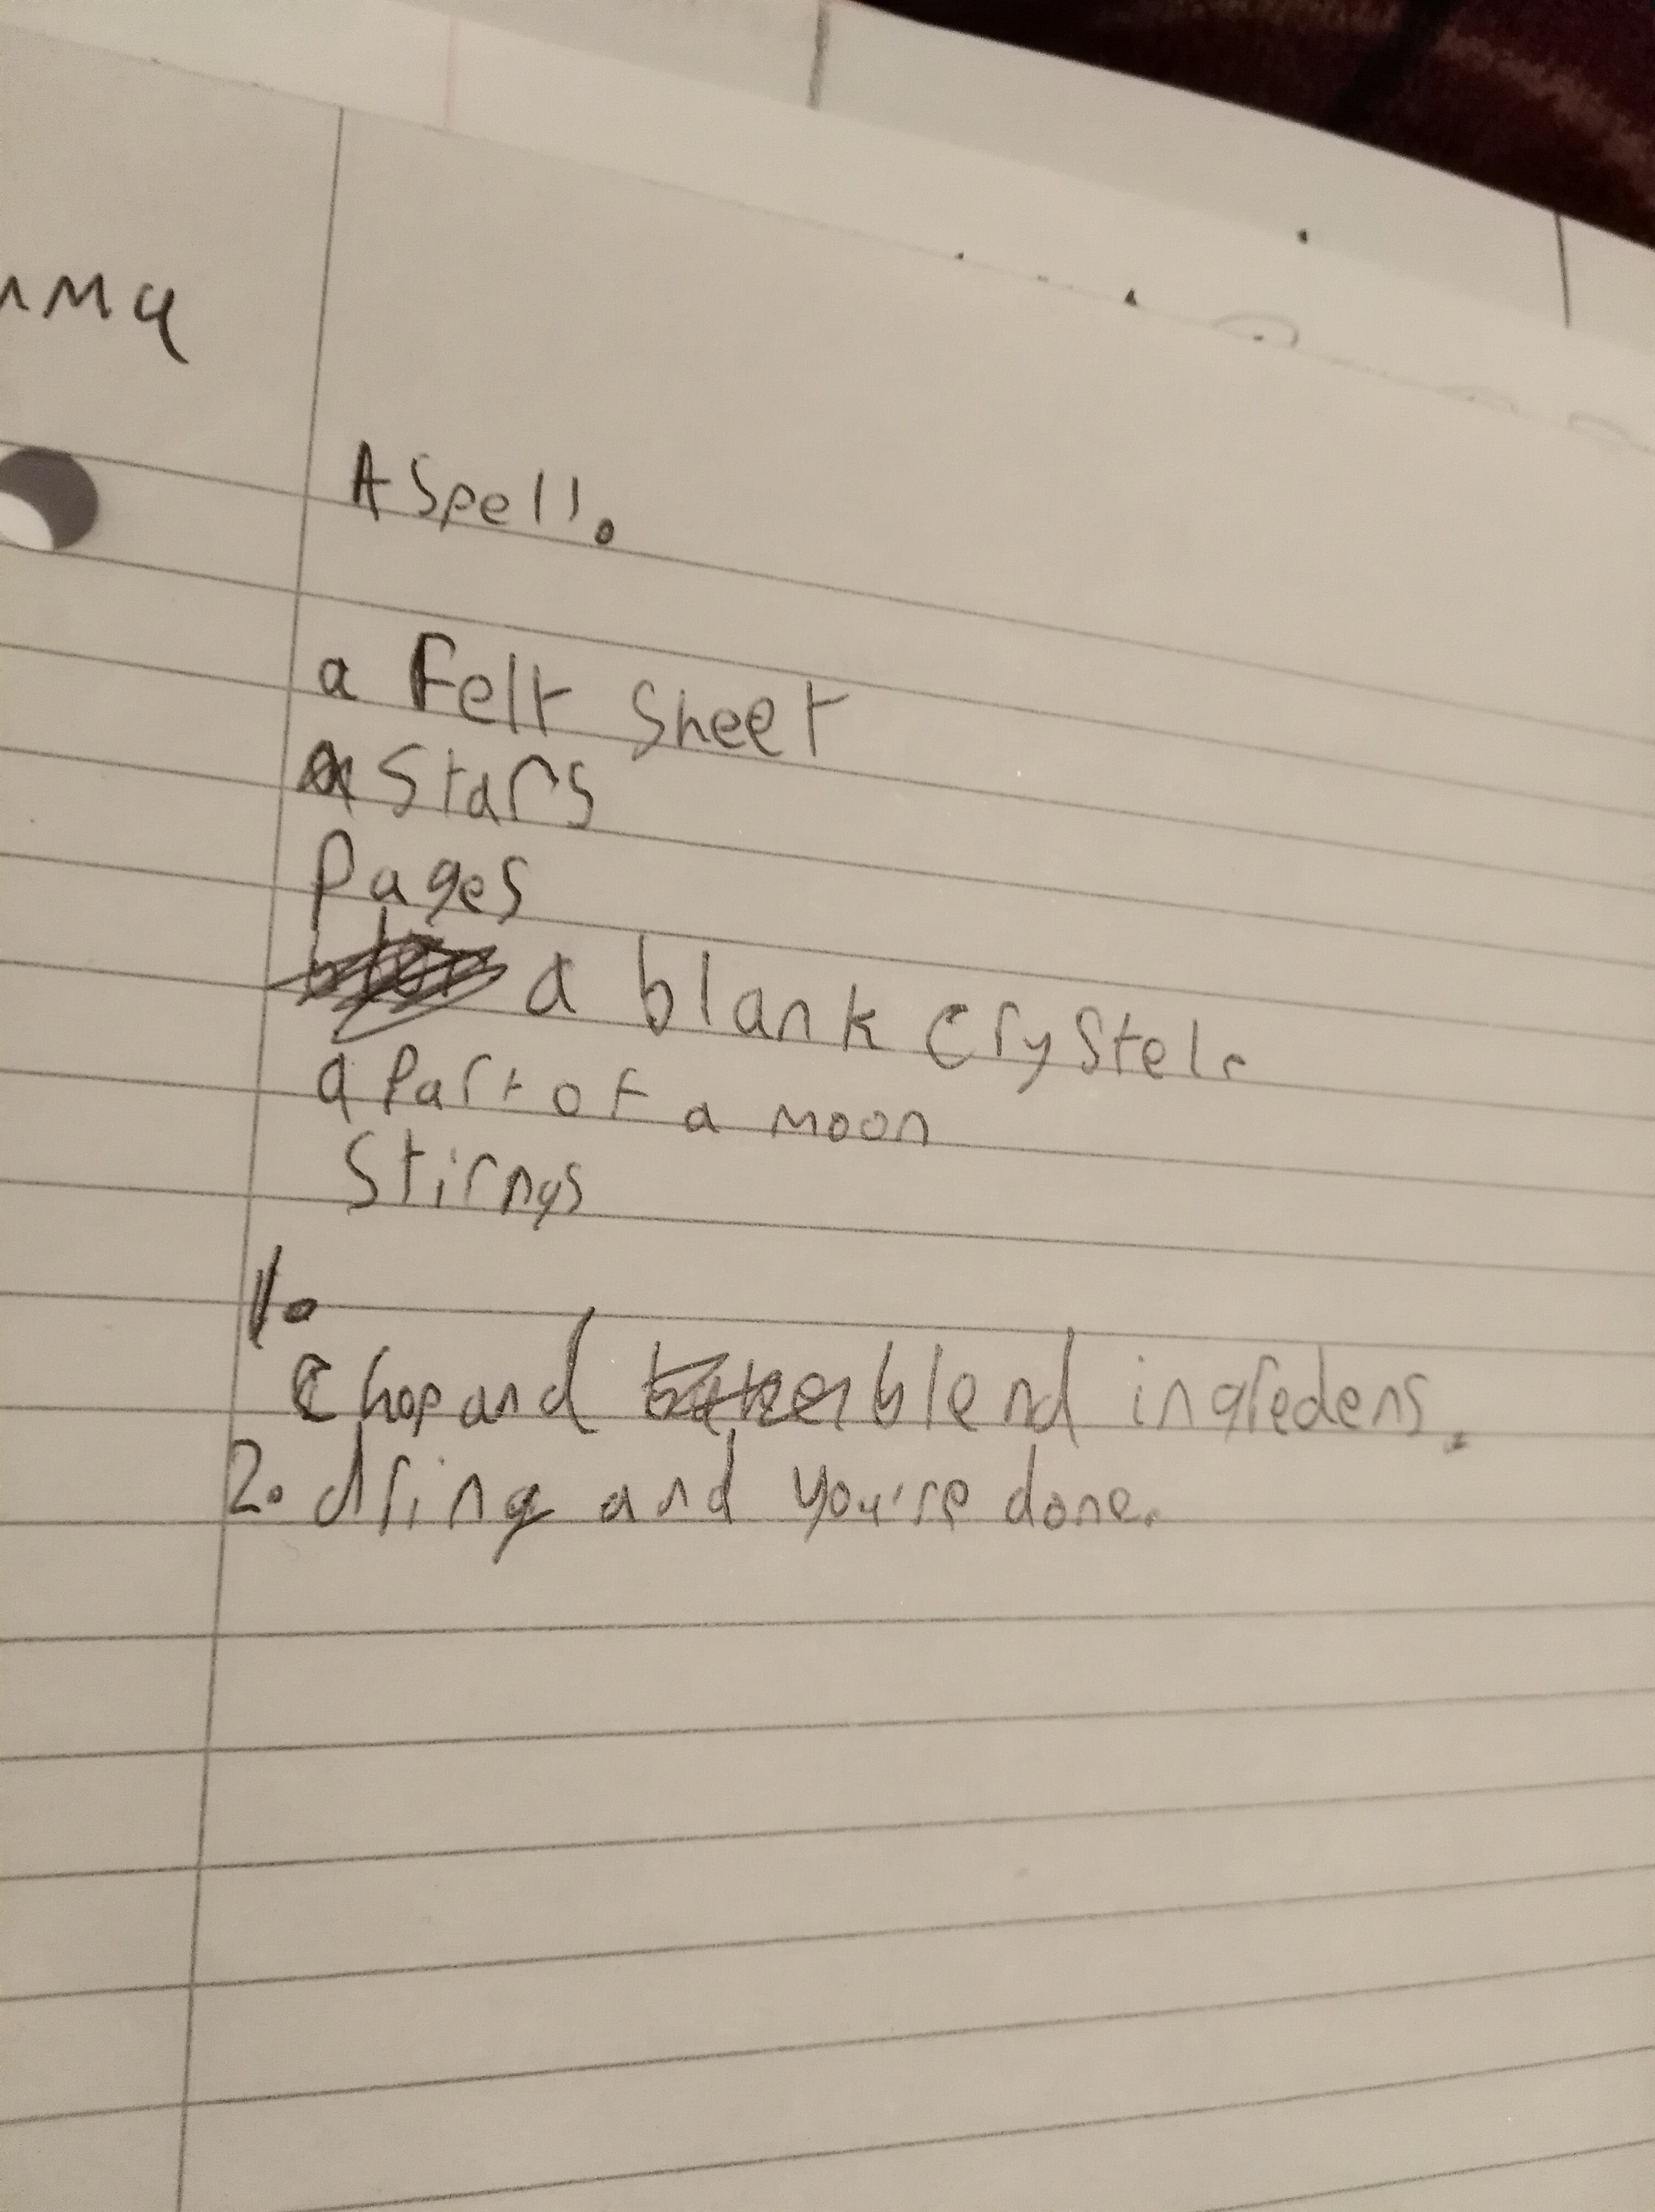 A Spell.
a Felt Sheet
Stars
Pages
a blank Crystel.
a Part of a moon
Stirngs
1.
Chop and blend ingredens.
2. dring and you're done.